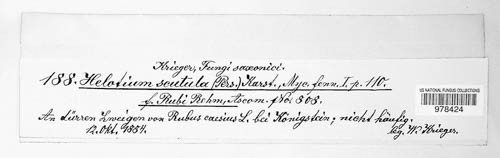 Krieger, Fungi saxonici.
188. Helotium scutula (Pers.) Karst., Myc. fenn. I. p. 110.
f. Rubi Rehm, Ascom. No. 808.
An dürren Zweigen von Rubus caesius L. bei Königstein; nicht häufig.
12. Okt. 1884. leg. W. Krieger.
US NATIONAL FUNGUS COLLECTIONS
978424